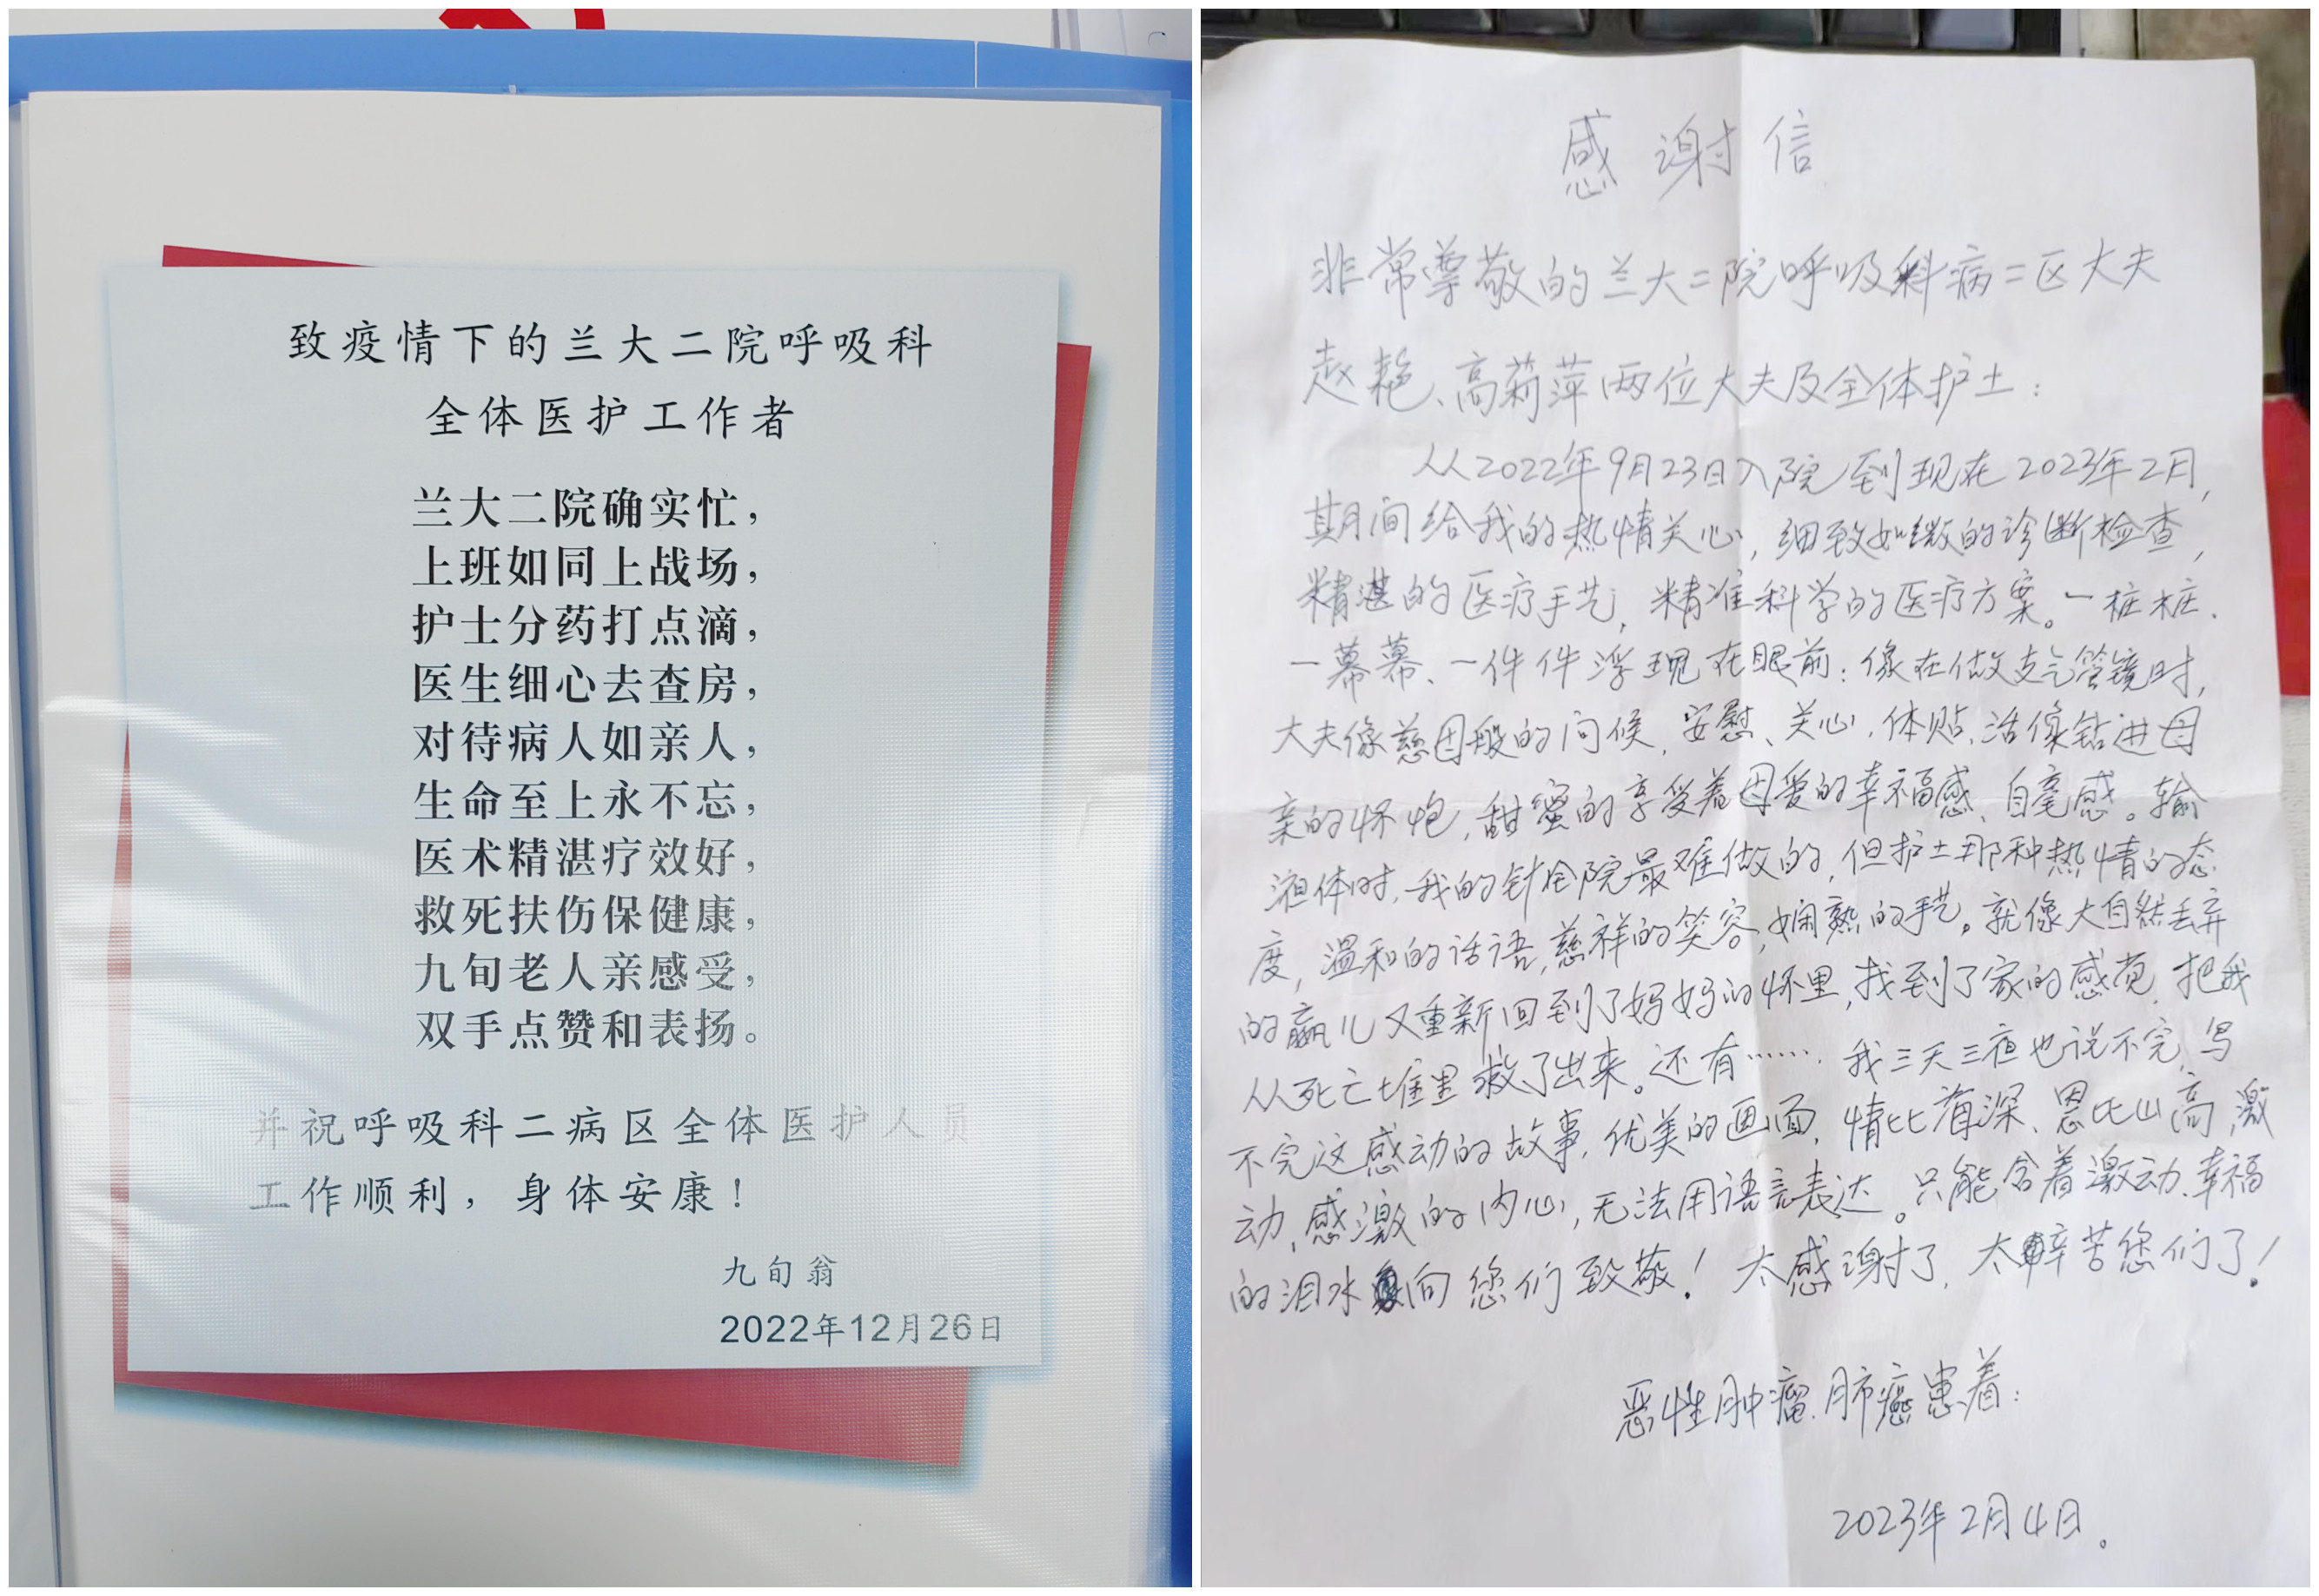 致疫情下的兰大二院呼吸科
全体医护工作者
兰大二院确实忙，
上班如同上战场，
护士分药打点滴，
医生细心去查房，
对待病人如亲人，
生命至上永不忘，
医术精湛疗效好，
救死扶伤保健康，
九旬老人亲感受，
双手点赞和表扬。
并祝呼吸科二病区全体医护人员
工作顺利，身体安康！
九旬翁
2022年12月26日
感谢信
非常尊敬的兰大二院呼吸科病二区大夫
赵艳、高莉萍两位大夫及全体护士：
从2022年9月23日入院到现在2023年2月，
期间给我的热情关心，细致如微的诊断检查，
精湛的医疗手艺，精准科学的医疗方案。一桩桩、
一幕幕、一件件浮现在眼前：像在做支气管镜时，
大夫像慈母般的问候、安慰、关心、体贴、活像钻进母
亲的怀抱，甜蜜的享受着母爱的幸福感、自毫感。输
液体时，我的针全院最难做的，但护士那种热情的态
度，温和的话语，慈祥的笑容，娴熟的手艺。就像大自然丢弃
的赢儿又重新回到了妈妈的怀里，找到了家的感觉，把我
从死亡堆里救了出来。还有……我三天三夜也说不完，写
不完这感动的故事，优美的画面，情比海深、恩比山高，激
动、感激的内心，无法用语言表达。只能含着激动、幸福
的泪水向您们致敬！太感谢了，太辛苦您们了！
恶性肿瘤、肺癌患着：
2023年2月4日。